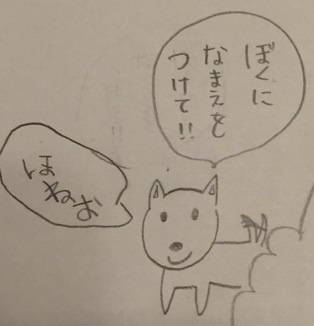 ぼくに
なまえを
つけて!!
ほねお